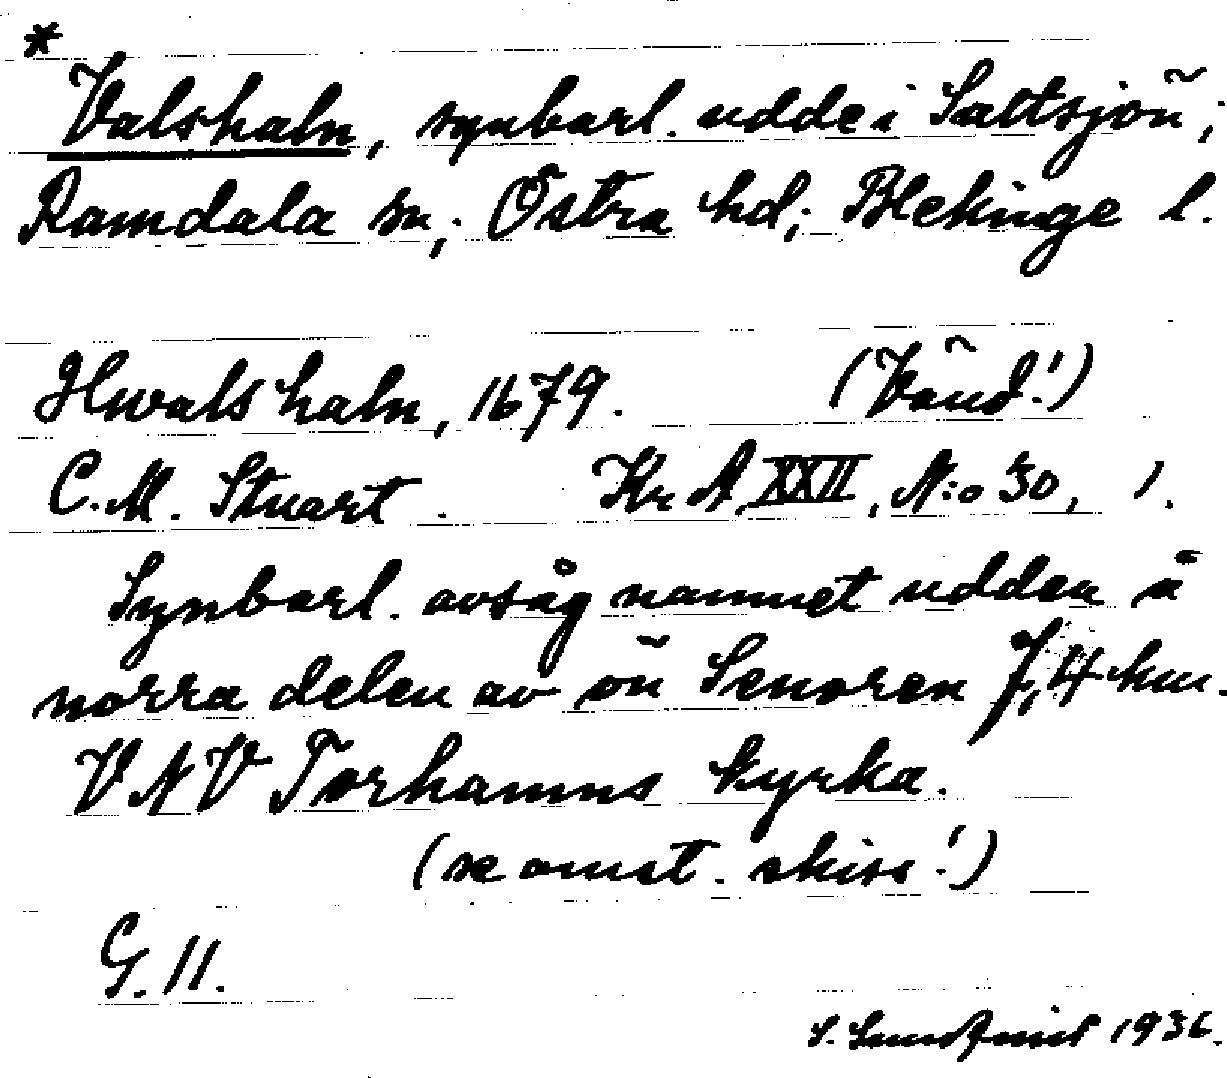 *
Valshaln, synbarl. udde i Saltsjön;
Ramdala sn; Östra hd; Blekinge l.
Hwals haln, 1679. (Vänd!)
C. M. Stuart. Kr A XXII, N:o 30, 1.
Synbarl. avsåg namnet udden å
norra delen av ön Senoren 7,4 km.
VNV Torhamns kyrka.
(se omst. skiss!)
G. 11.
S. 1936.